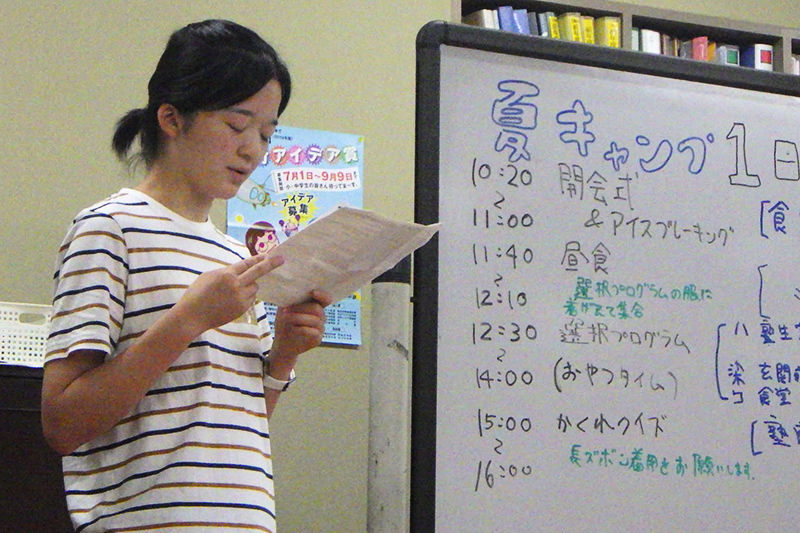 アイデア賞
7月1日～9月9日
小・中学生の皆さん待ってまーす。
アイデア
募集
夏キャンプ1日
10:20 開会式
～ & アイスブレーキング
11:00
11:40 昼食
～ 選択プログラムの服に
12:10 着がえて集合
12:30 選択プログラム
～
14:00 (おやつタイム)
15:00 かくれクイズ
～ 長ズボン着用をお願いします。
16:00
[食
ハ 塾生
染 玄関前
コ 食堂
[塾